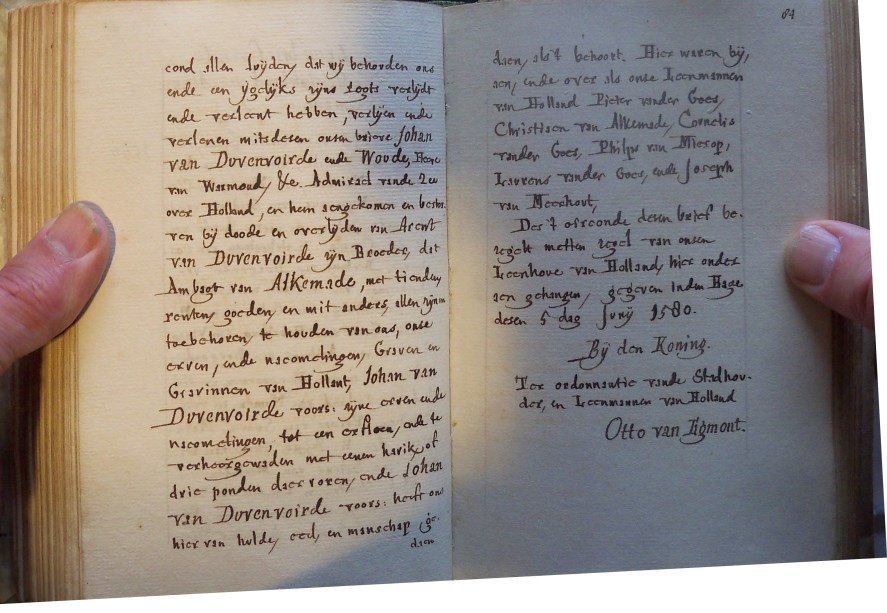 cond allen luijden, dat wij behouden ons
ende een ijgelijks zijns regts verlijdt
ende verleent hebben, verlijen ende
verlenen mits desen onsen brieve Johan
van Duvenvoirde ende Woude, Heere
van Warmond, &c. Admirael vande Zee
over Holland, en hem aengekomen en bestor-
ven bij doode en overlijden van Arent
van Duvenvoirde zijn Broeder, dat
Ambagt van Alkemade, met tienden,
renten, goeden, en mit anders, allen zijnen
toebehoren, te houden van ons, onse
erven, ende nacomelingen, Graven en
Gravinnen van Hollant, Johan van
Duvenvoirde voors: zijne erven ende
nacomelingen, tot een erfleen, ende te
verheergewaden met eenen havik, of
drie ponden daer voren, ende Johan
van Duvenvoirde voors: heeft ons
hier van hulde, eed, en manschap ge-
daen
84
daen, als't behoort. Hier waren bij,
aen, ende over als onse Leenmannen
van Holland Pieter vander Goes,
Christiaen van Alkemade, Cornelis
vander Goes, Philips van Mierop,
Laurens vander Goes, ende Joseph
van Meerhout,
Des't oirconde desen brief be-
zegelt metten zegel van onsen
Leenhove van Holland, hier onder
aen gehangen, gegeven inden Hage
desen 5 dag Junij 1580.
Bij den Koning.
Ter ordonnantie vande Stadhou-
der, en Leenmannen van Holland
Otto van Egmont.